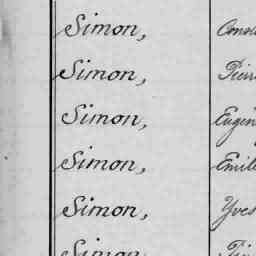 Simon,
Simon, Pierr
Simon, Eugén
Simon, Emile
Simon, Yves
Simon